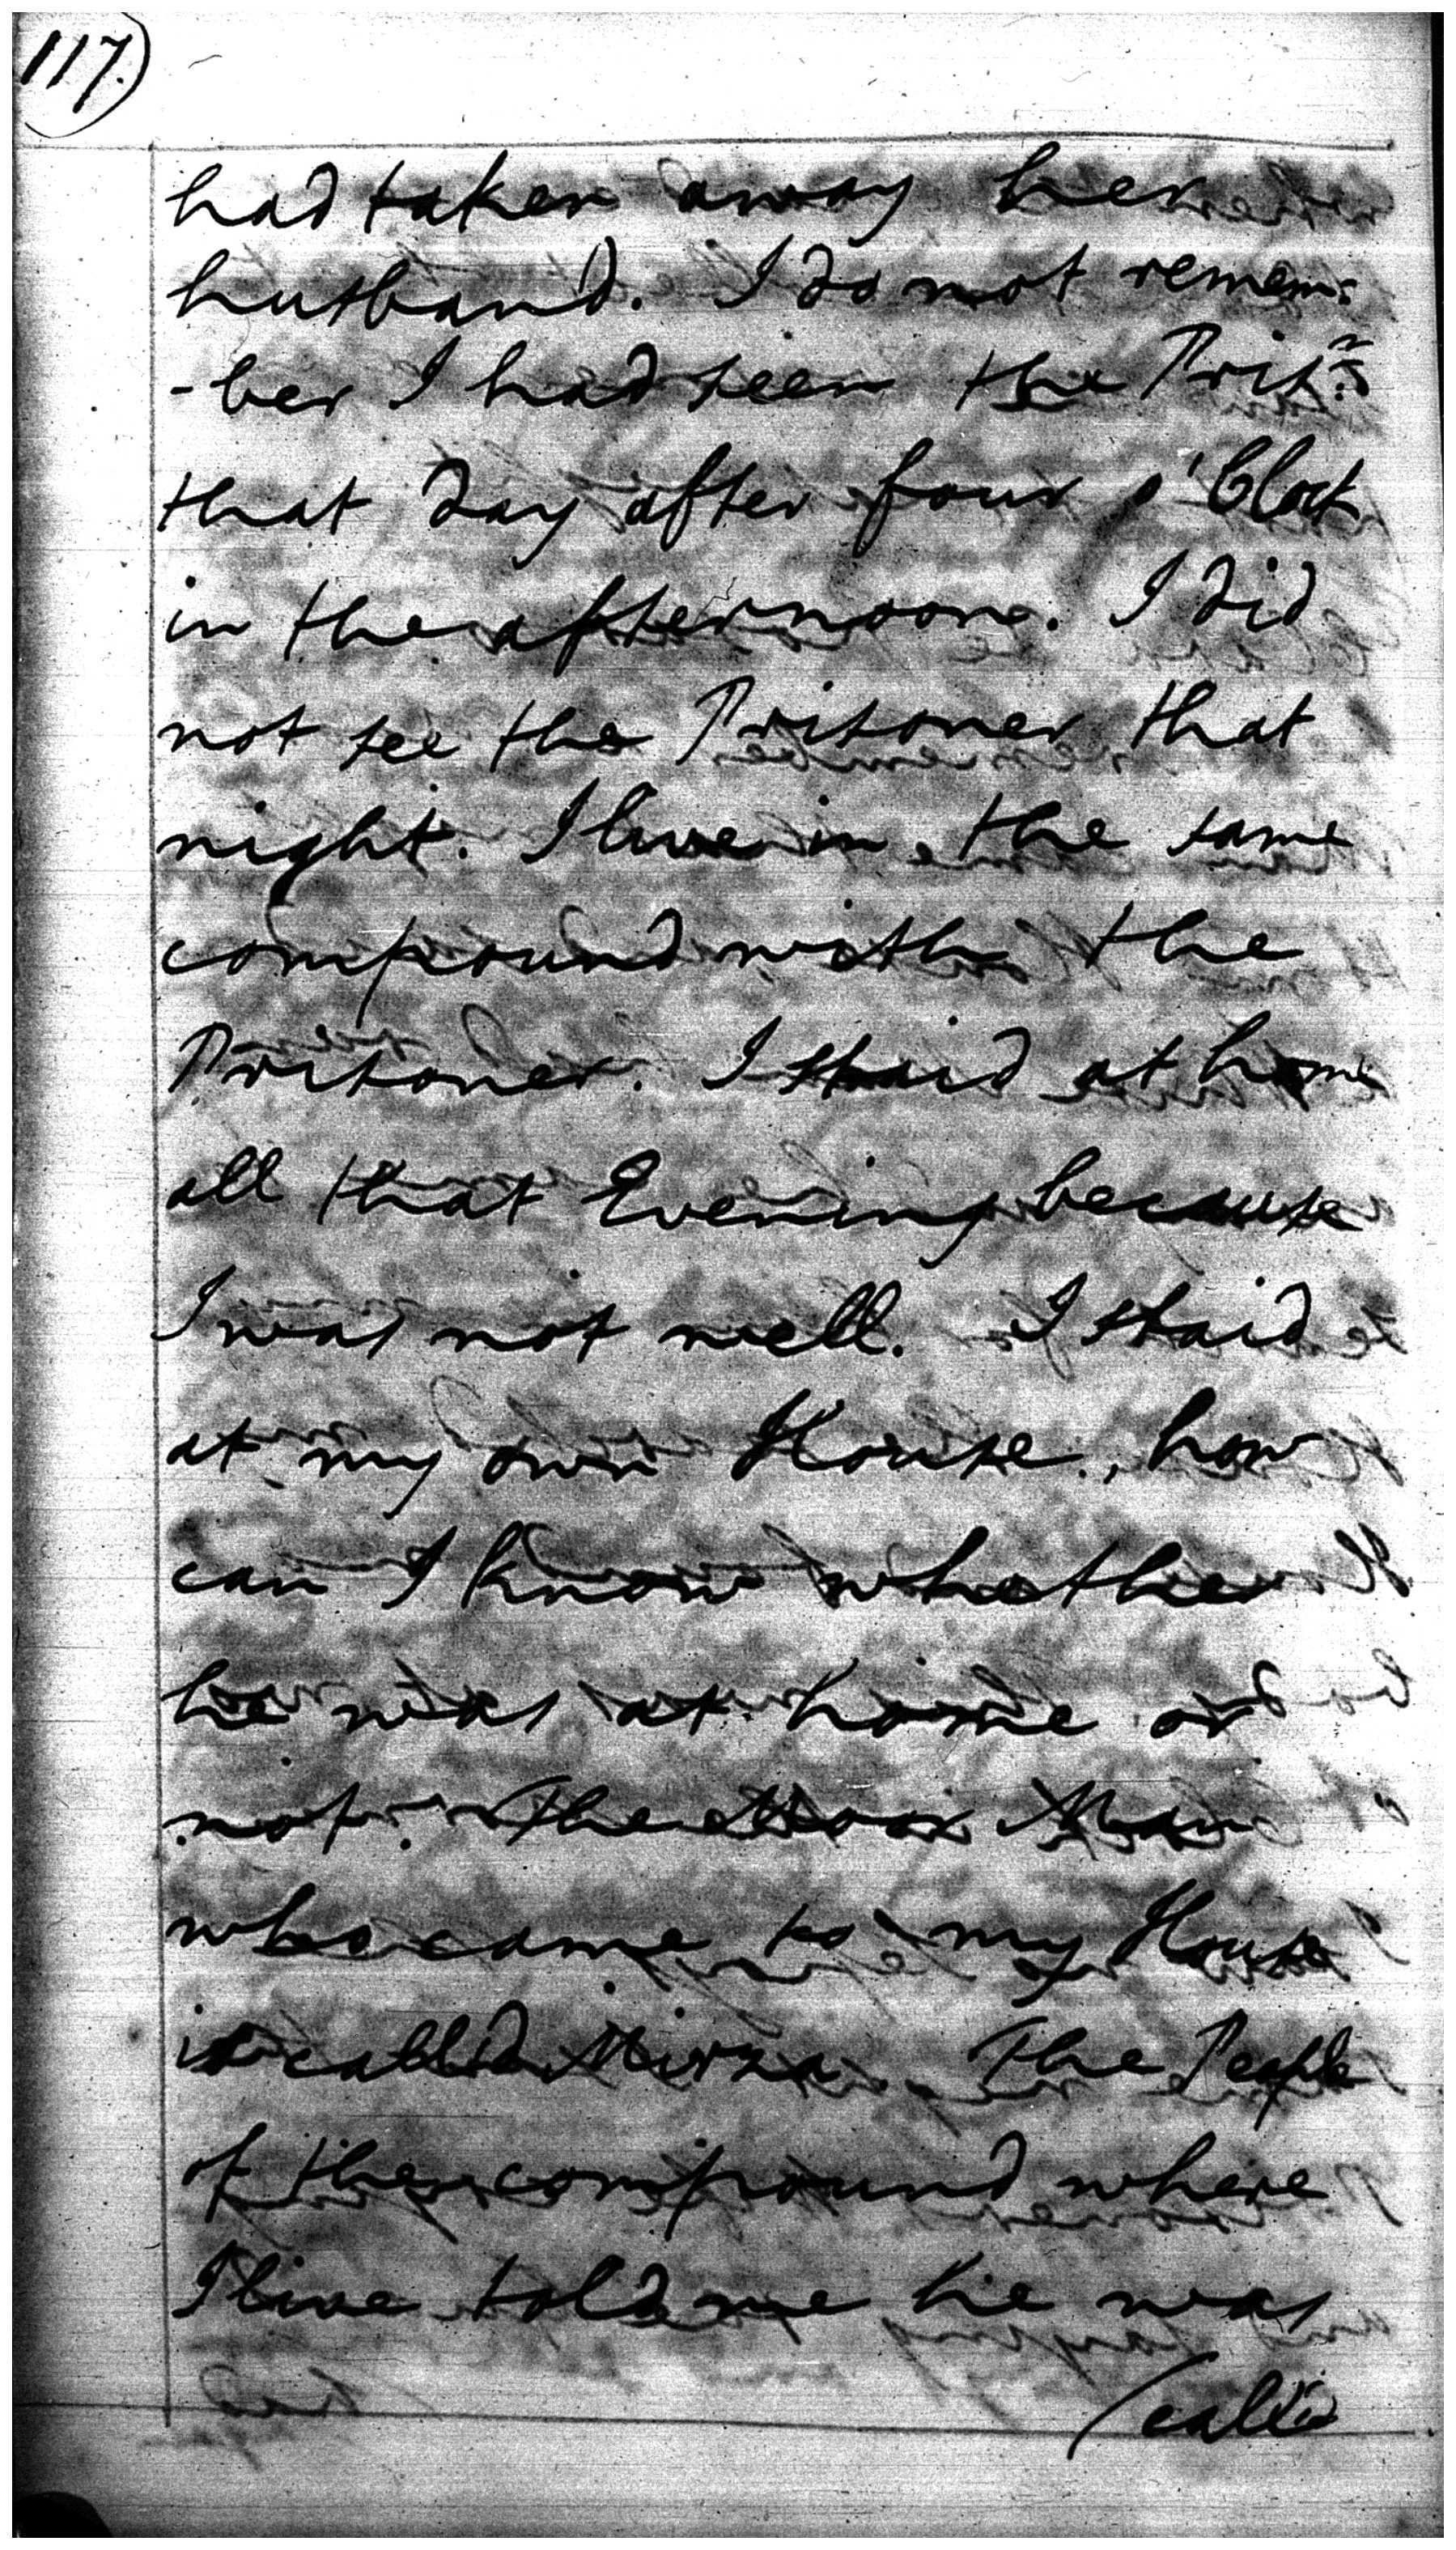 117.)
had taken away her
husband. I do not remem:
-ber I had seen the Prisr.
that day after four o'Clock
in the afternoon. I did
not see the Prisoner that
night. I live in the same
compound with the
Prisoner. I staid at home
all that Evening because
I was not well. I staid
at my own House, how
can I know whether
he was at home or
not. The Moor Man
who came to my House
is called Mirza. The People
of the compound where
I live told me he was
(calld